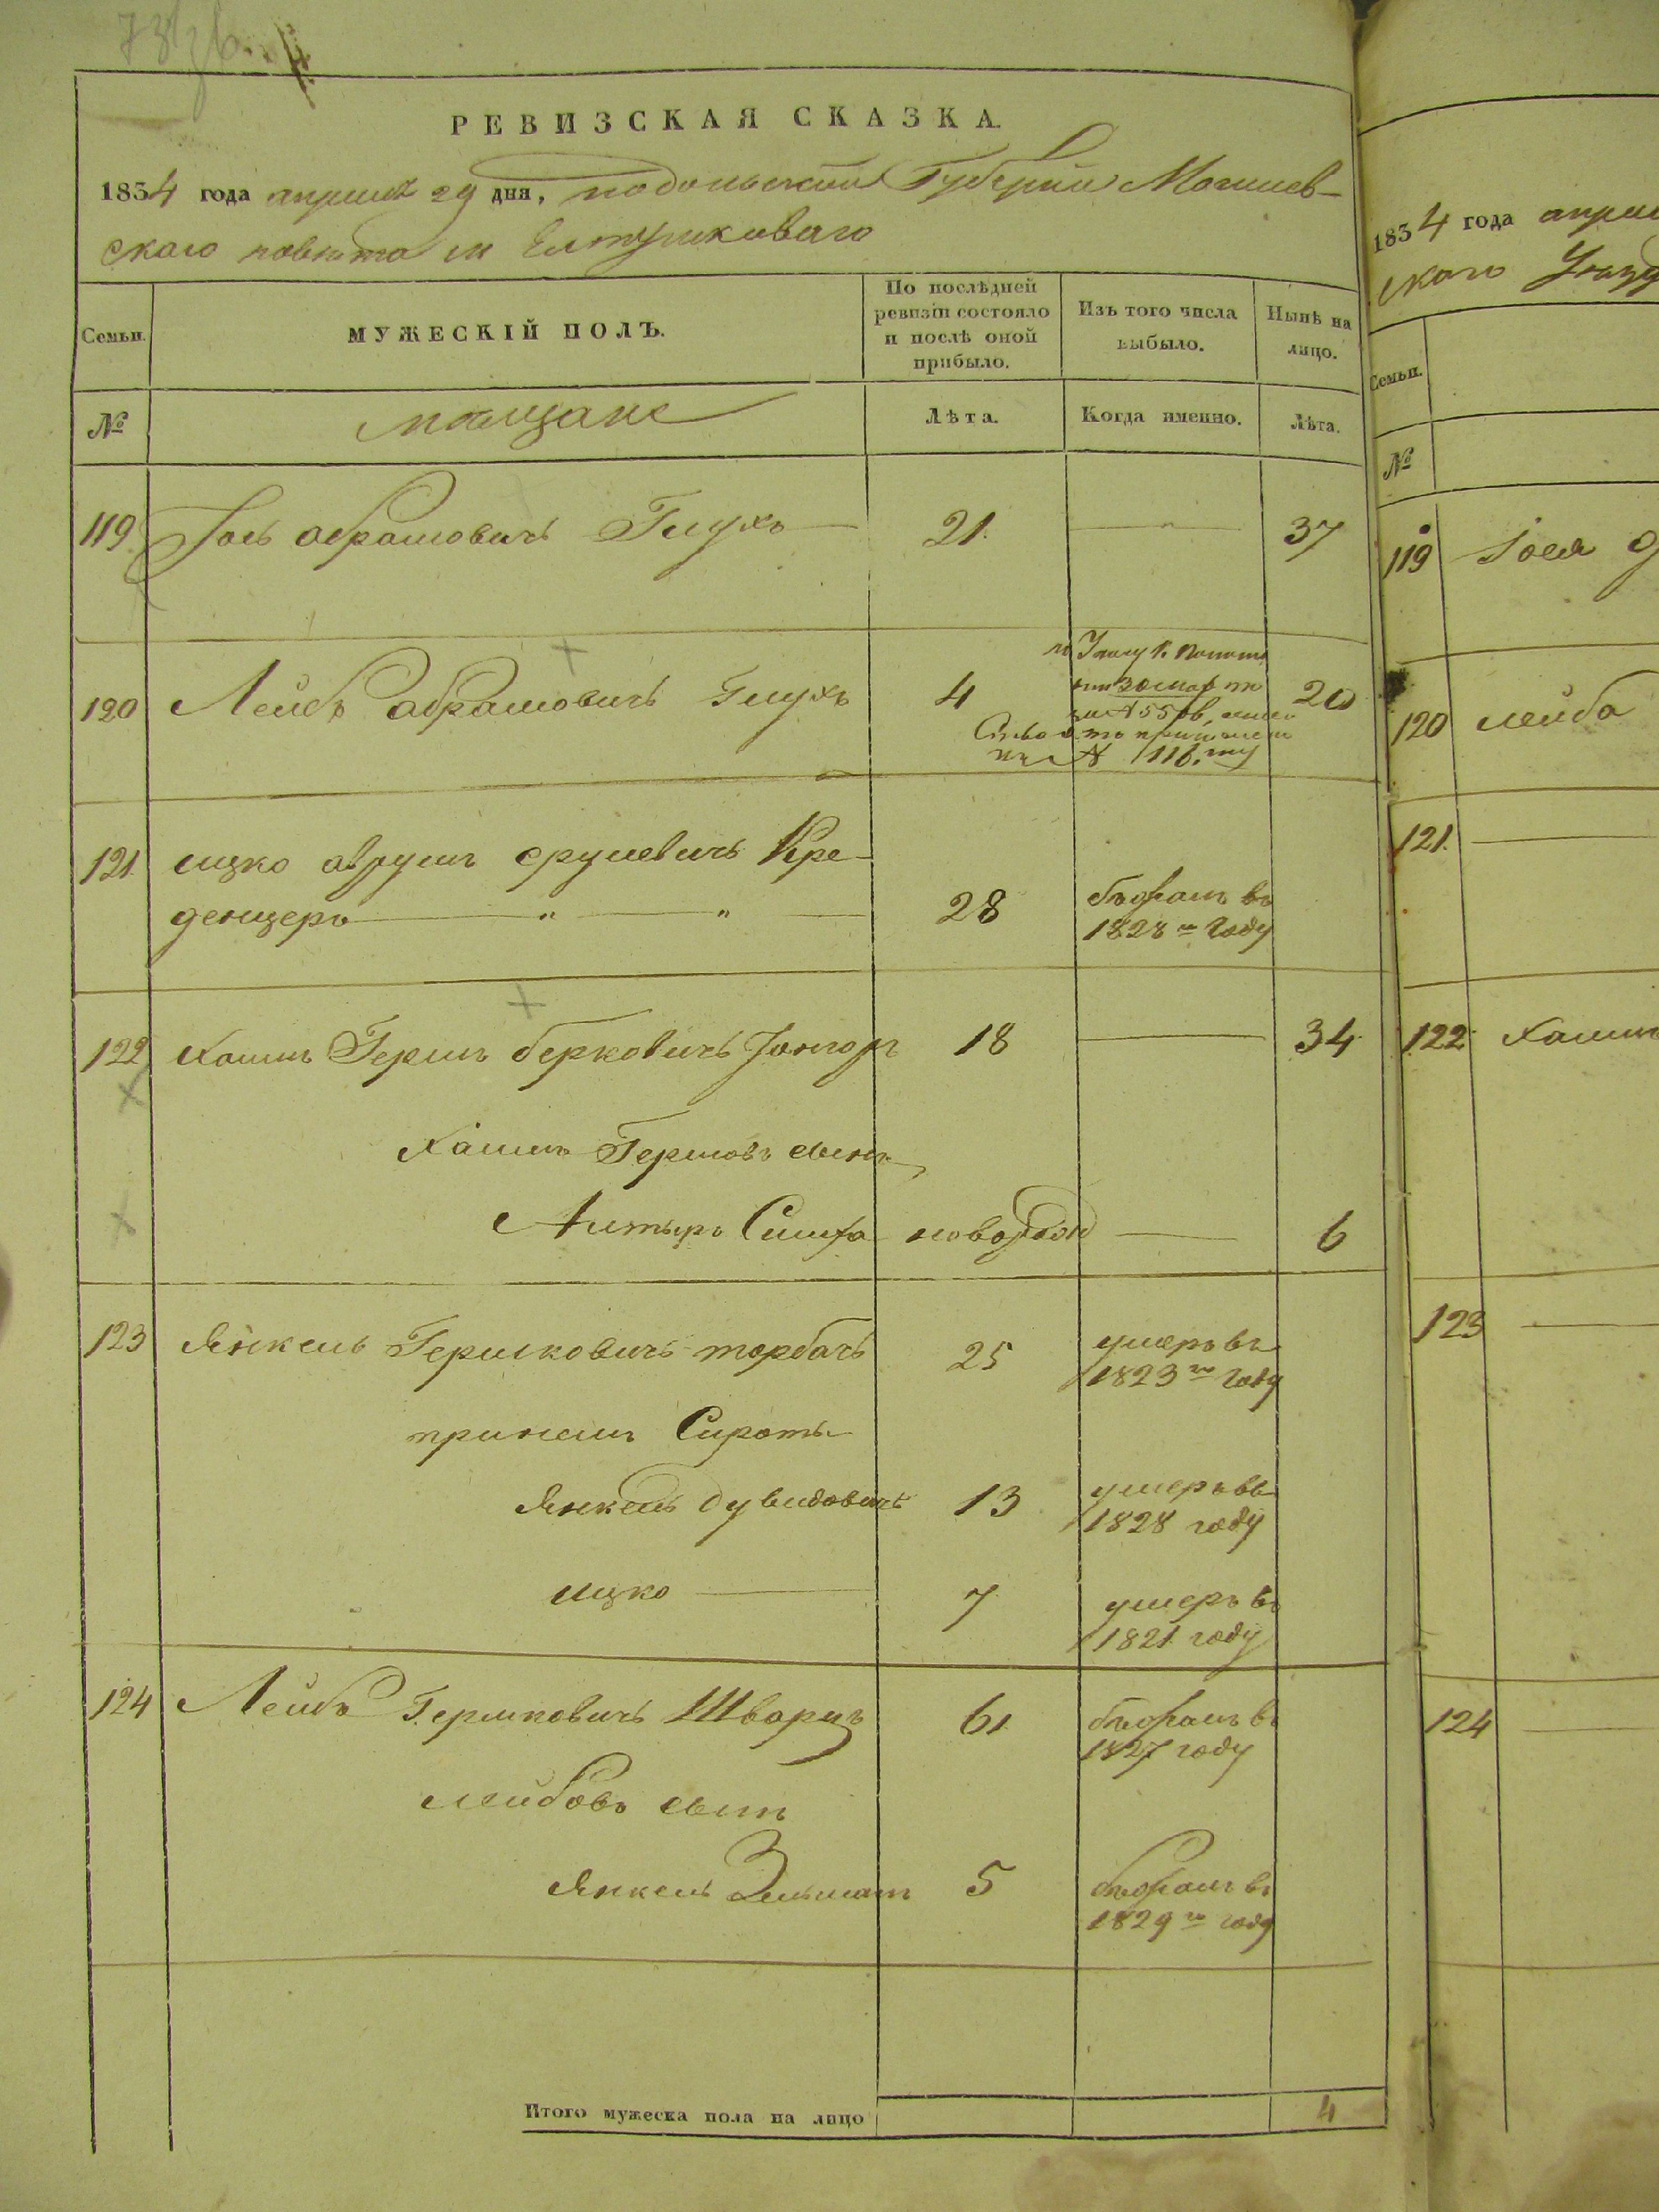 РЕВИЗСКАЯ СКАЗКА.
1834 года апреля 29 дня, подольской Губернии Могилев-
скаго повета м Елтушковаго
Семьи.
МУЖЕСКІЙ ПОЛЪ.
По послѣдней ревизіи состояло и послѣ оной прибыло.
Изъ того числа выбыло.
Нынѣ на лицо.
№
мещане
Лѣта.
Когда именно.
Лѣта.
119 Іось абрамовичъ Глухъ 21. 37
120 Лейбъ абрамовичъ Глухъ 4 20
№ 116.
121. ицко аврумъ срулевичъ Кре-
денцеръ 28 бѣжалъ въ
1828го Году
122 Хаимъ Гершъ берковичъ 18 34
Хаимъ Гершовъ сынъ
Алтыръ Симха новорожд 6
123 Янкель Гершковичъ торбачъ 25 умеръ въ
1823го году
Сироты
Янкель дувидовичъ 13 умеръ въ
1828 году
ицко 7 умеръ въ
1821 году
124 Лейбъ Гершковичъ Шварцъ 61 бѣжалъ въ
1827 году
лейбовъ сынъ
Янкель Зельманъ 5 бѣжалъ въ
1829го году
Итого мужеска пола на лицо 4
1834 года апрел
скаго Уезд
Семьи.
№
119
120 лейба
121.
122 Хаим
123
124